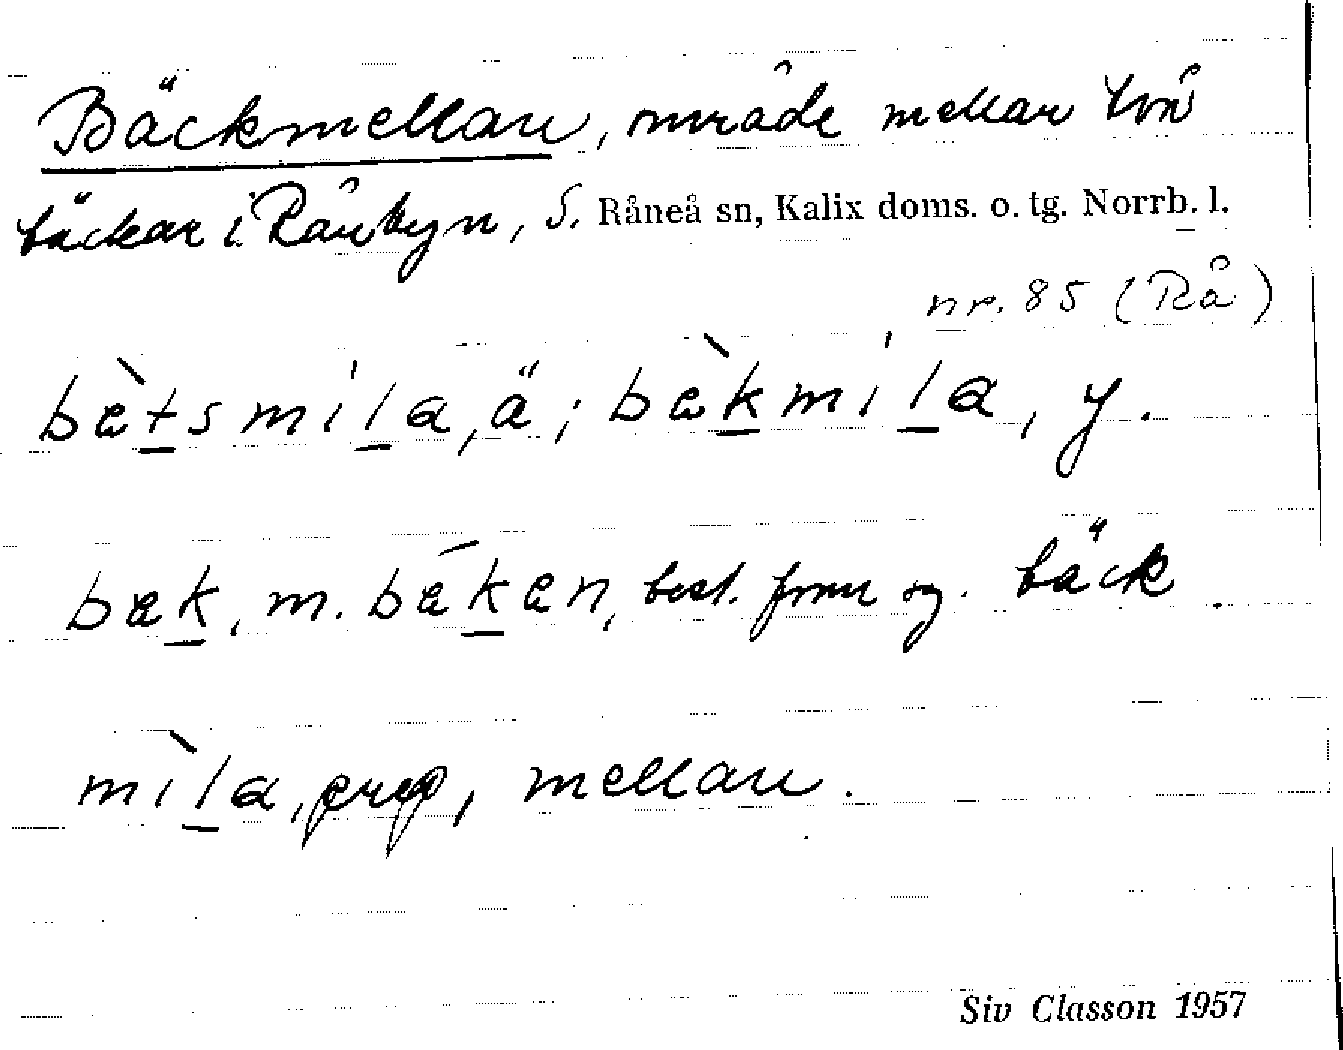 Bäckmellan, område mellan två
bäckar i Rånbyn, S. Råneå sn, Kalix doms. o. tg. Norrb. l.
nr. 85 (Rå)
bètsmíla, ä; bèkmíla, y.
bæk, m. bǽkæn, best. form sg. bäck.
mìla, prep, mellan.
Siv Classon 1957